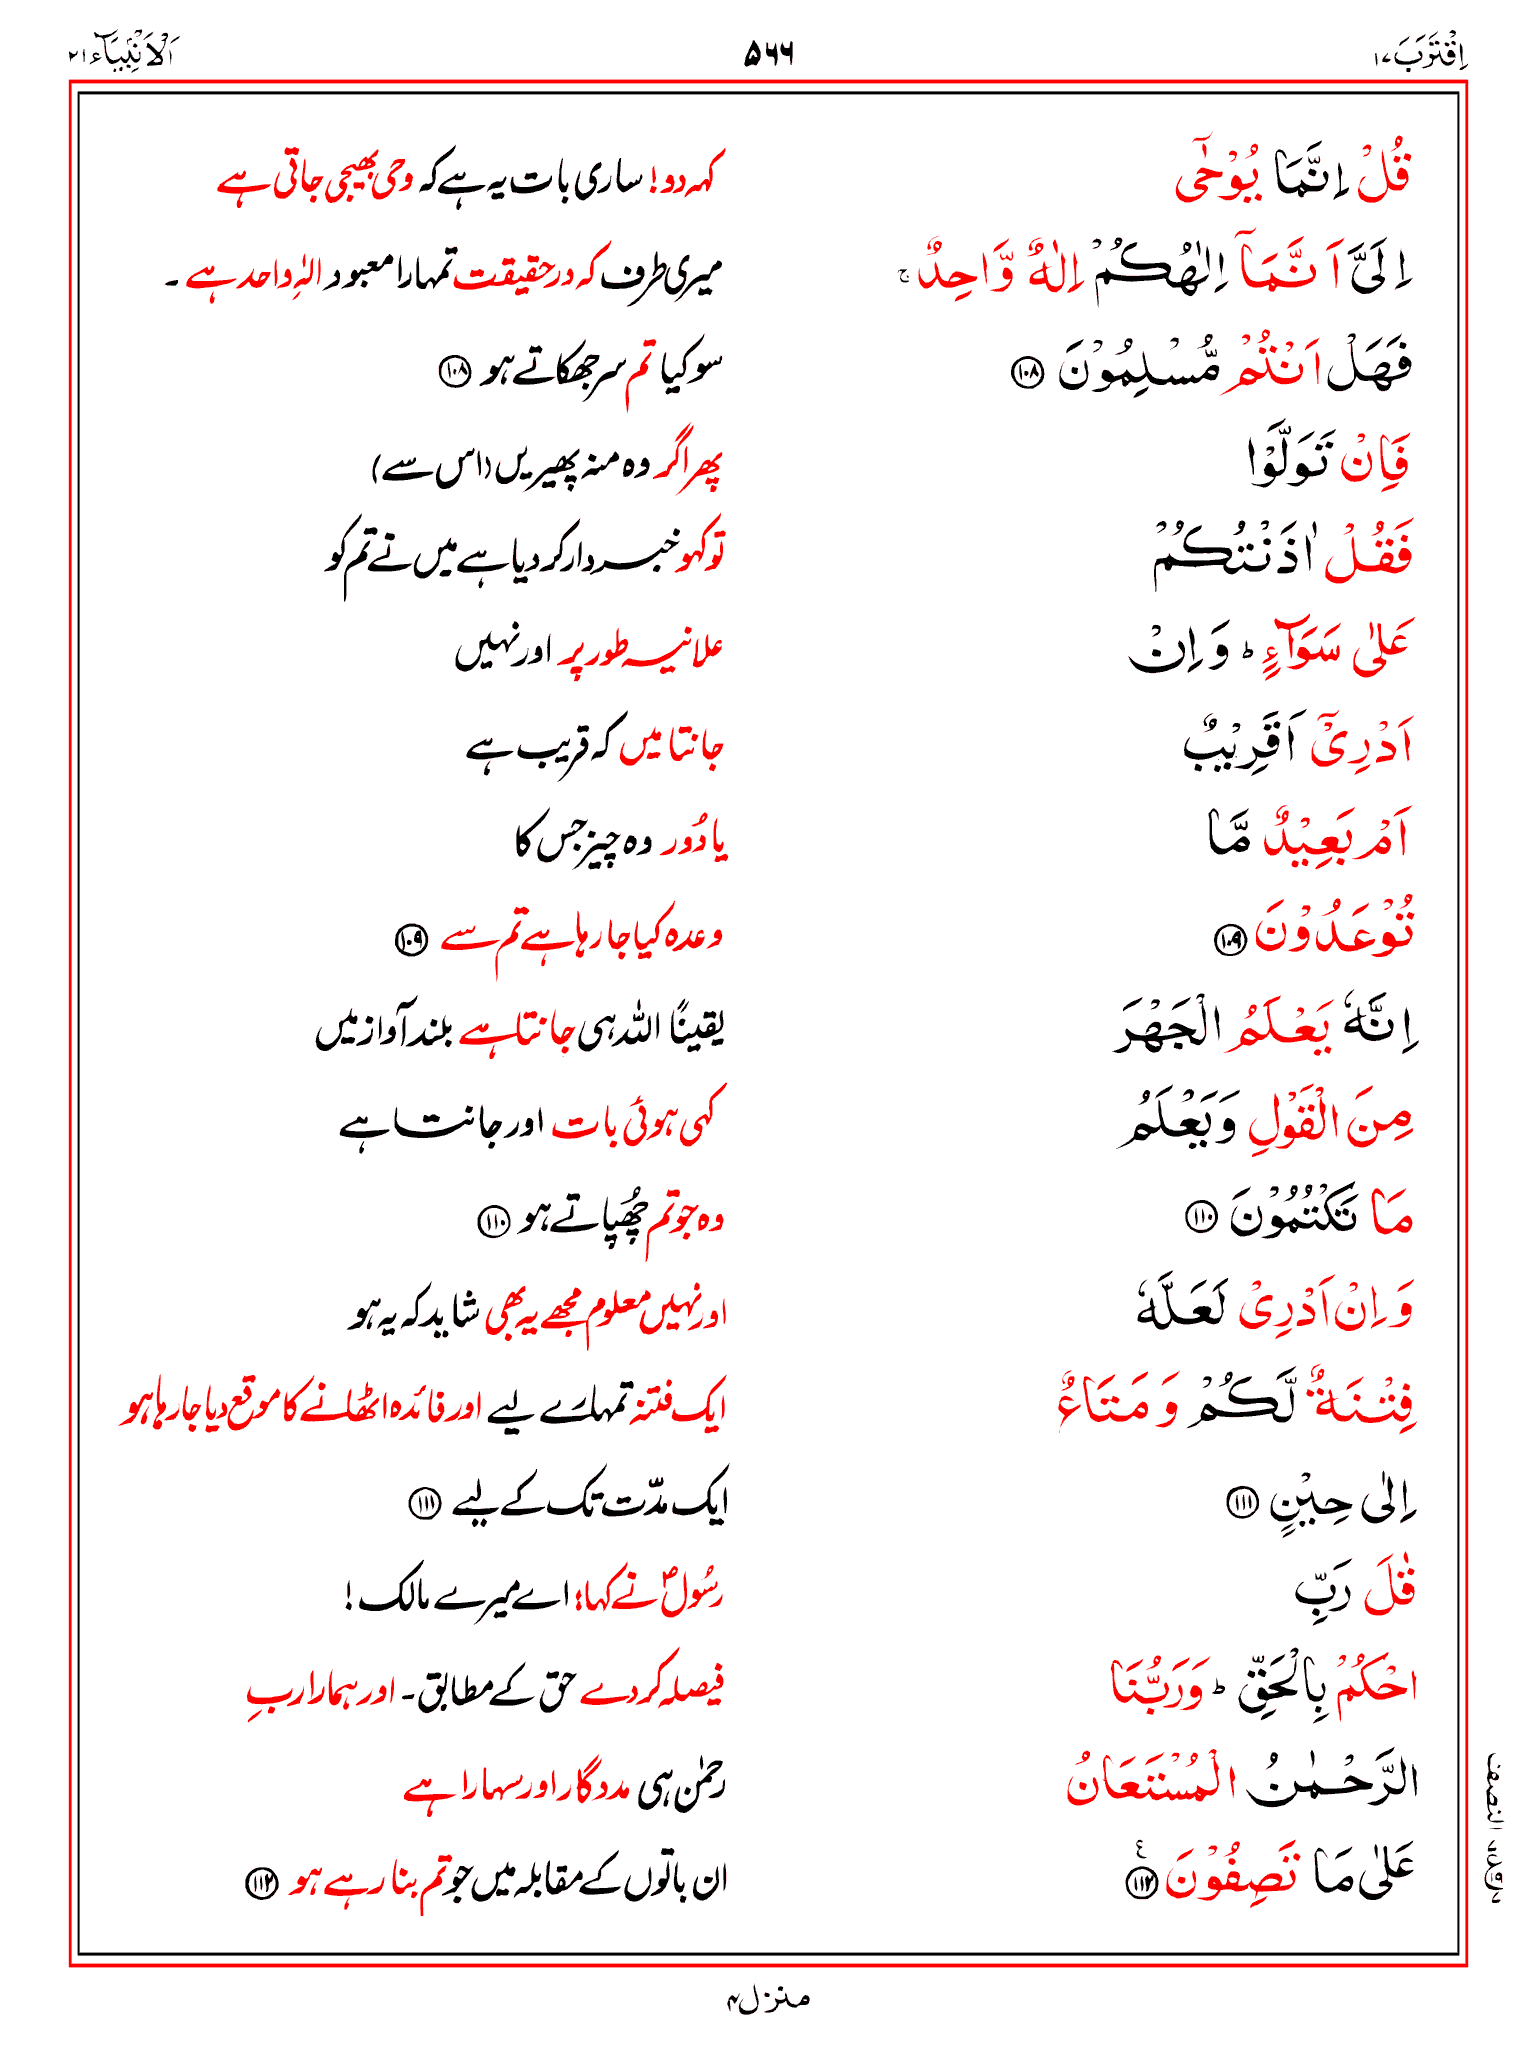 اِقْتَرَبَ ۱۷ ۵۶۶ اَلْاَنْۢبِیَآء ۲۱
قُلْ اِنَّمَا یُوْحٰۤی کہہ دو! ساری بات یہ ہے کہ وحی بھیجی جاتی ہے
اِلَیَّ اَنَّمَاۤ اِلٰهُكُمْ اِلٰهٌ وَّاحِدٌ ۚ میری طرف کہ در حقیقت تمہارا معبود الٰہِ واحد ہے ۔
فَهَلْ اَنْتُمْ مُّسْلِمُوْنَ ﴿۱۰۸﴾ سو کیا تم سر جھکاتے ہو ﴿۱۰۸﴾
فَاِنْ تَوَلَّوْا پھر اگر وہ منہ پھیریں (اس سے)
فَقُلْ اٰذَنْتُكُمْ تو کہو خبردار کر دیا ہے میں نے تم کو
عَلٰی سَوَآءٍ ؕ وَاِنْ علانیہ طور پر اور نہیں
اَدْرِیْۤ اَقَرِیْبٌ جانتا میں کہ قریب ہے
اَمْ بَعِیْدٌ مَّا یا دُور وہ چیز جس کا
تُوْعَدُوْنَ ﴿۱۰۹﴾ وعدہ کیا جا رہا ہے تم سے ﴿۱۰۹﴾
اِنَّهٗ یَعْلَمُ الْجَهْرَ یقینًا اللہ ہی جانتا ہے بلند آواز میں
مِنَ الْقَوْلِ وَیَعْلَمُ کہی ہوئی بات اور جانتا ہے
مَا تَكْتُمُوْنَ ﴿۱۱۰﴾ وہ جو تم چُھپاتے ہو ﴿۱۱۰﴾
وَاِنْ اَدْرِیْ لَعَلَّهٗ اور نہیں معلوم مجھے یہ بھی شاید کہ یہ ہو
فِتْنَةٌ لَّكُمْ وَمَتَاعٌ ایک فتنہ تمہارے لیے اور فائدہ اٹھانے کا موقع دیا جا رہا ہو
اِلٰی حِیْنٍ ﴿۱۱۱﴾ ایک مدّت تک کے لیے ﴿۱۱۱﴾
قٰلَ رَبِّ رسُولؐ نے کہا؛ اے میرے مالک !
احْكُمْ بِالْحَقِّ ؕ وَرَبُّنَا فیصلہ کر دے حق کے مطابق ۔ اور ہمارا ربِ
الرَّحْمٰنُ الْمُسْتَعَانُ رحمٰن ہی مددگار اور سہارا ہے
عَلٰی مَا تَصِفُوْنَ ﴿۱۱۲﴾ ع ان باتوں کے مقابلہ میں جو تم بنا رہے ہو ﴿۱۱۲﴾
منزل ۴